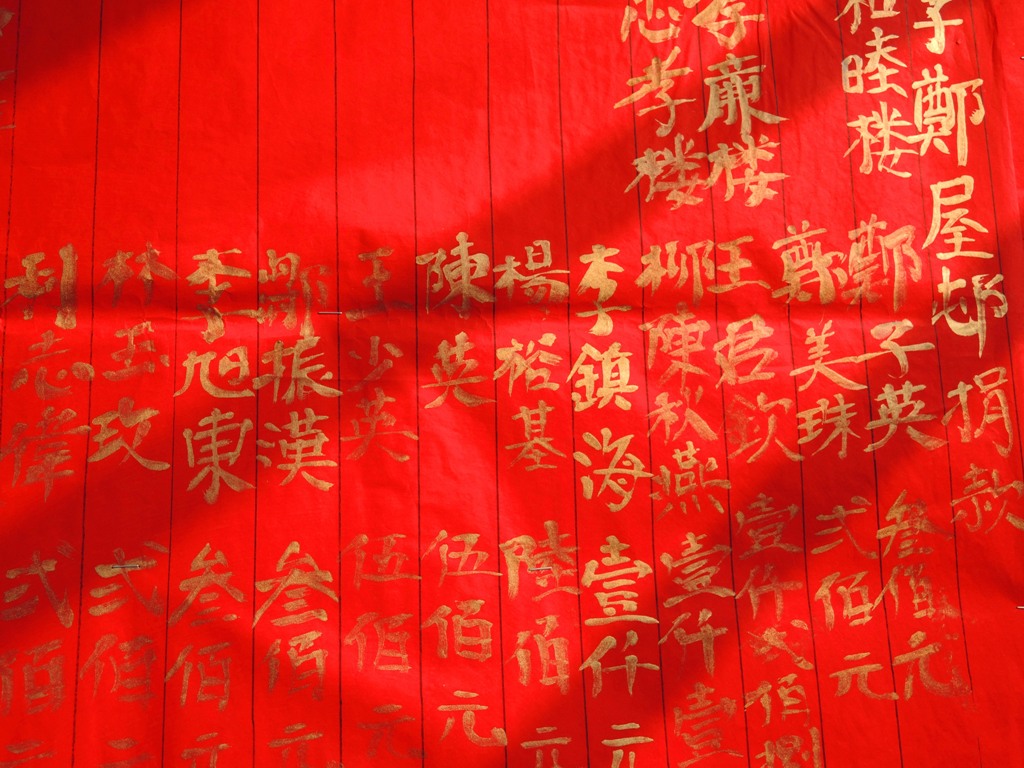 李鄭屋邨捐款
和睦楼 鄭子英 叁佰元
鄭美珠 弍佰元
孝廉楼 王君钦 壹仟弍佰捌
忠孝楼 柳陳秋燕 壹仟壹
李鎮海 壹仟元
楊裕基 陸佰元
陳英 伍佰元
王少英 伍佰元
鄭振漢 叁佰元
李旭東 叁佰元
林玉玫 弍佰元
利志偉 弍佰元